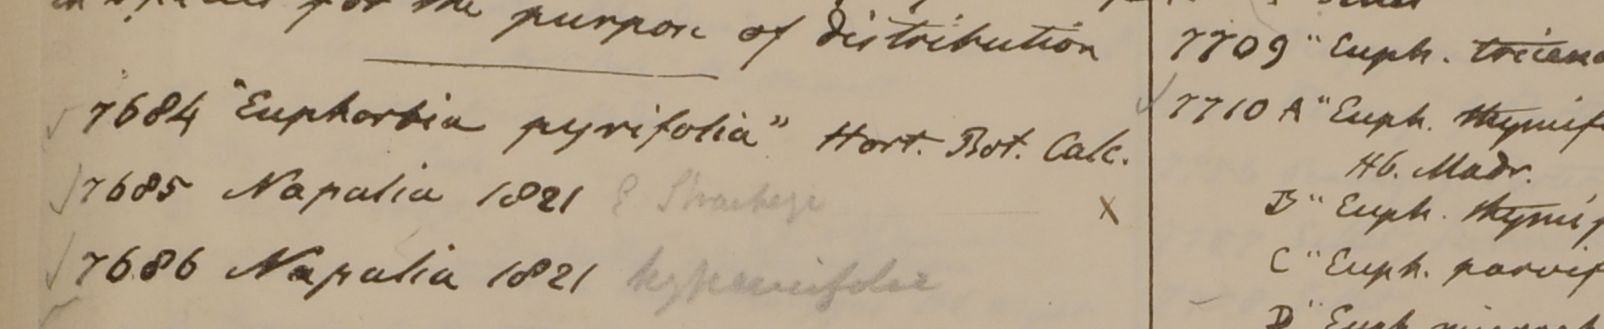 for the purpose of distribution
7684 "Euphorbia pyrifolia" Hort. Bot. Calc.
7685 Napalia 1821 E Stracheyi x
7686 Napalia 1821 hypericifolia
7709 " Euph.
7710 A " Euph. thymif
Hb. Madr.
B " Euph. thymif
C " Euph. parvif
D " Euph.